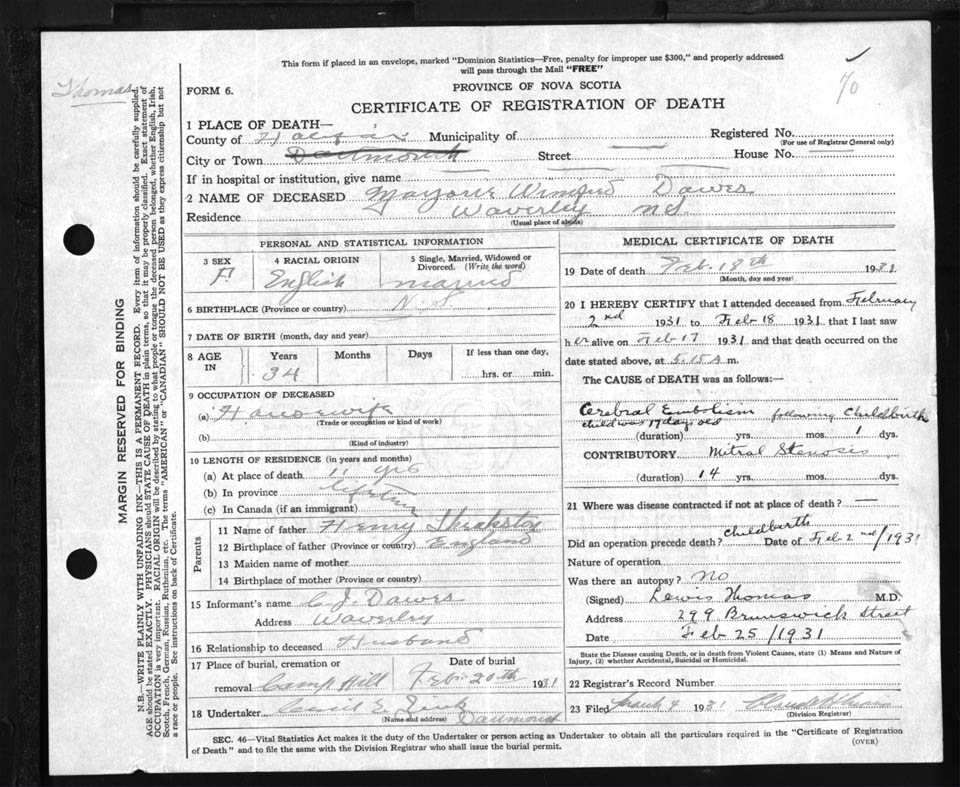 This form if placed in an envelope, marked "Dominion Statistics—Free, penalty for improper use $300," and properly addressed
will pass through the Mail "FREE"
Thomas
70
FORM 6.
PROVINCE OF NOVA SCOTIA
CERTIFICATE OF REGISTRATION OF DEATH
1 PLACE OF DEATH—
County of Halifax Municipality of Registered No.
(For use of Registrar General only)
City or Town Dartmouth Street House No.
If in hospital or institution, give name
2 NAME OF DECEASED Marjorie Winifred Dawes
Residence Waverley N.S.
(Usual place of abode)
PERSONAL AND STATISTICAL INFORMATION
3 SEX F.
4 RACIAL ORIGIN English
5 Single, Married, Widowed or Divorced. (Write the word) married
6 BIRTHPLACE (Province or country) N.S.
7 DATE OF BIRTH (month, day and year)
8 AGE IN Years Months Days If less than one day,
34 hrs. or min.
9 OCCUPATION OF DECEASED
(a) Housewife
(Trade or occupation or kind of work)
(b)
(Kind of industry)
10 LENGTH OF RESIDENCE (in years and months)
(a) At place of death 11 yrs
(b) In province lifetime
(c) In Canada (if an immigrant)
Parents
11 Name of father Henry
12 Birthplace of father (Province or country) England
13 Maiden name of mother
14 Birthplace of mother (Province or country)
15 Informant's name C. J. Dawes
Address Waverley
16 Relationship to deceased Husband
17 Place of burial, cremation or Date of burial
removal Camp Hill Feb. 20th 1931
18 Undertaker Cecil E. Zink
(Name and address) Dartmouth
MEDICAL CERTIFICATE OF DEATH
19 Date of death Feb. 18th 1931
(Month, day and year)
20 I HEREBY CERTIFY that I attended deceased from February
2nd 1931 to Feb 18 1931 that I last saw
her alive on Feb 17 1931 and that death occurred on the
date stated above, at 5.15 A m.
The CAUSE OF DEATH was as follows:—
Cerebral Embolism following Childbirth
child was 17 days old
(duration) yrs. mos. 1 dys.
CONTRIBUTORY Mitral Stenosis
(duration) 14 yrs. mos. dys.
21 Where was disease contracted if not at place of death?
Did an operation precede death? Childbirth Date of Feb 2nd/1931
Nature of operation
Was there an autopsy? No
(Signed) Lewis Thomas M.D.
Address 299 Brunswick Street
Date Feb 25/1931
State the Disease causing Death, or in death from Violent Causes, state (1) Means and Nature of
Injury, (2) whether Accidental, Suicidal or Homicidal.
22 Registrar's Record Number
23 Filed March 4 1931
(Division Registrar)
SEC. 46—Vital Statistics Act makes it the duty of the Undertaker or person acting as Undertaker to obtain all the particulars required in the "Certificate of Registration
of Death" and to file the same with the Division Registrar who shall issue the burial permit.
(OVER)
MARGIN RESERVED FOR BINDING
N.B.—WRITE PLAINLY WITH UNFADING INK—THIS IS A PERMANENT RECORD. Every item of information should be carefully supplied.
AGE should be stated EXACTLY. PHYSICIANS should STATE CAUSE OF DEATH in plain terms, so that it may be properly classified. Exact statement of
OCCUPATION is very important. RACIAL ORIGIN will be described by stating to what people or tongue the deceased person belonged, whether English, Irish,
Scotch, French, German, Russian, Ruthenian, etc. The terms "AMERICAN" or "CANADIAN" SHOULD NOT BE USED as they express citizenship but not
a race or people. See instructions on back of Certificate.